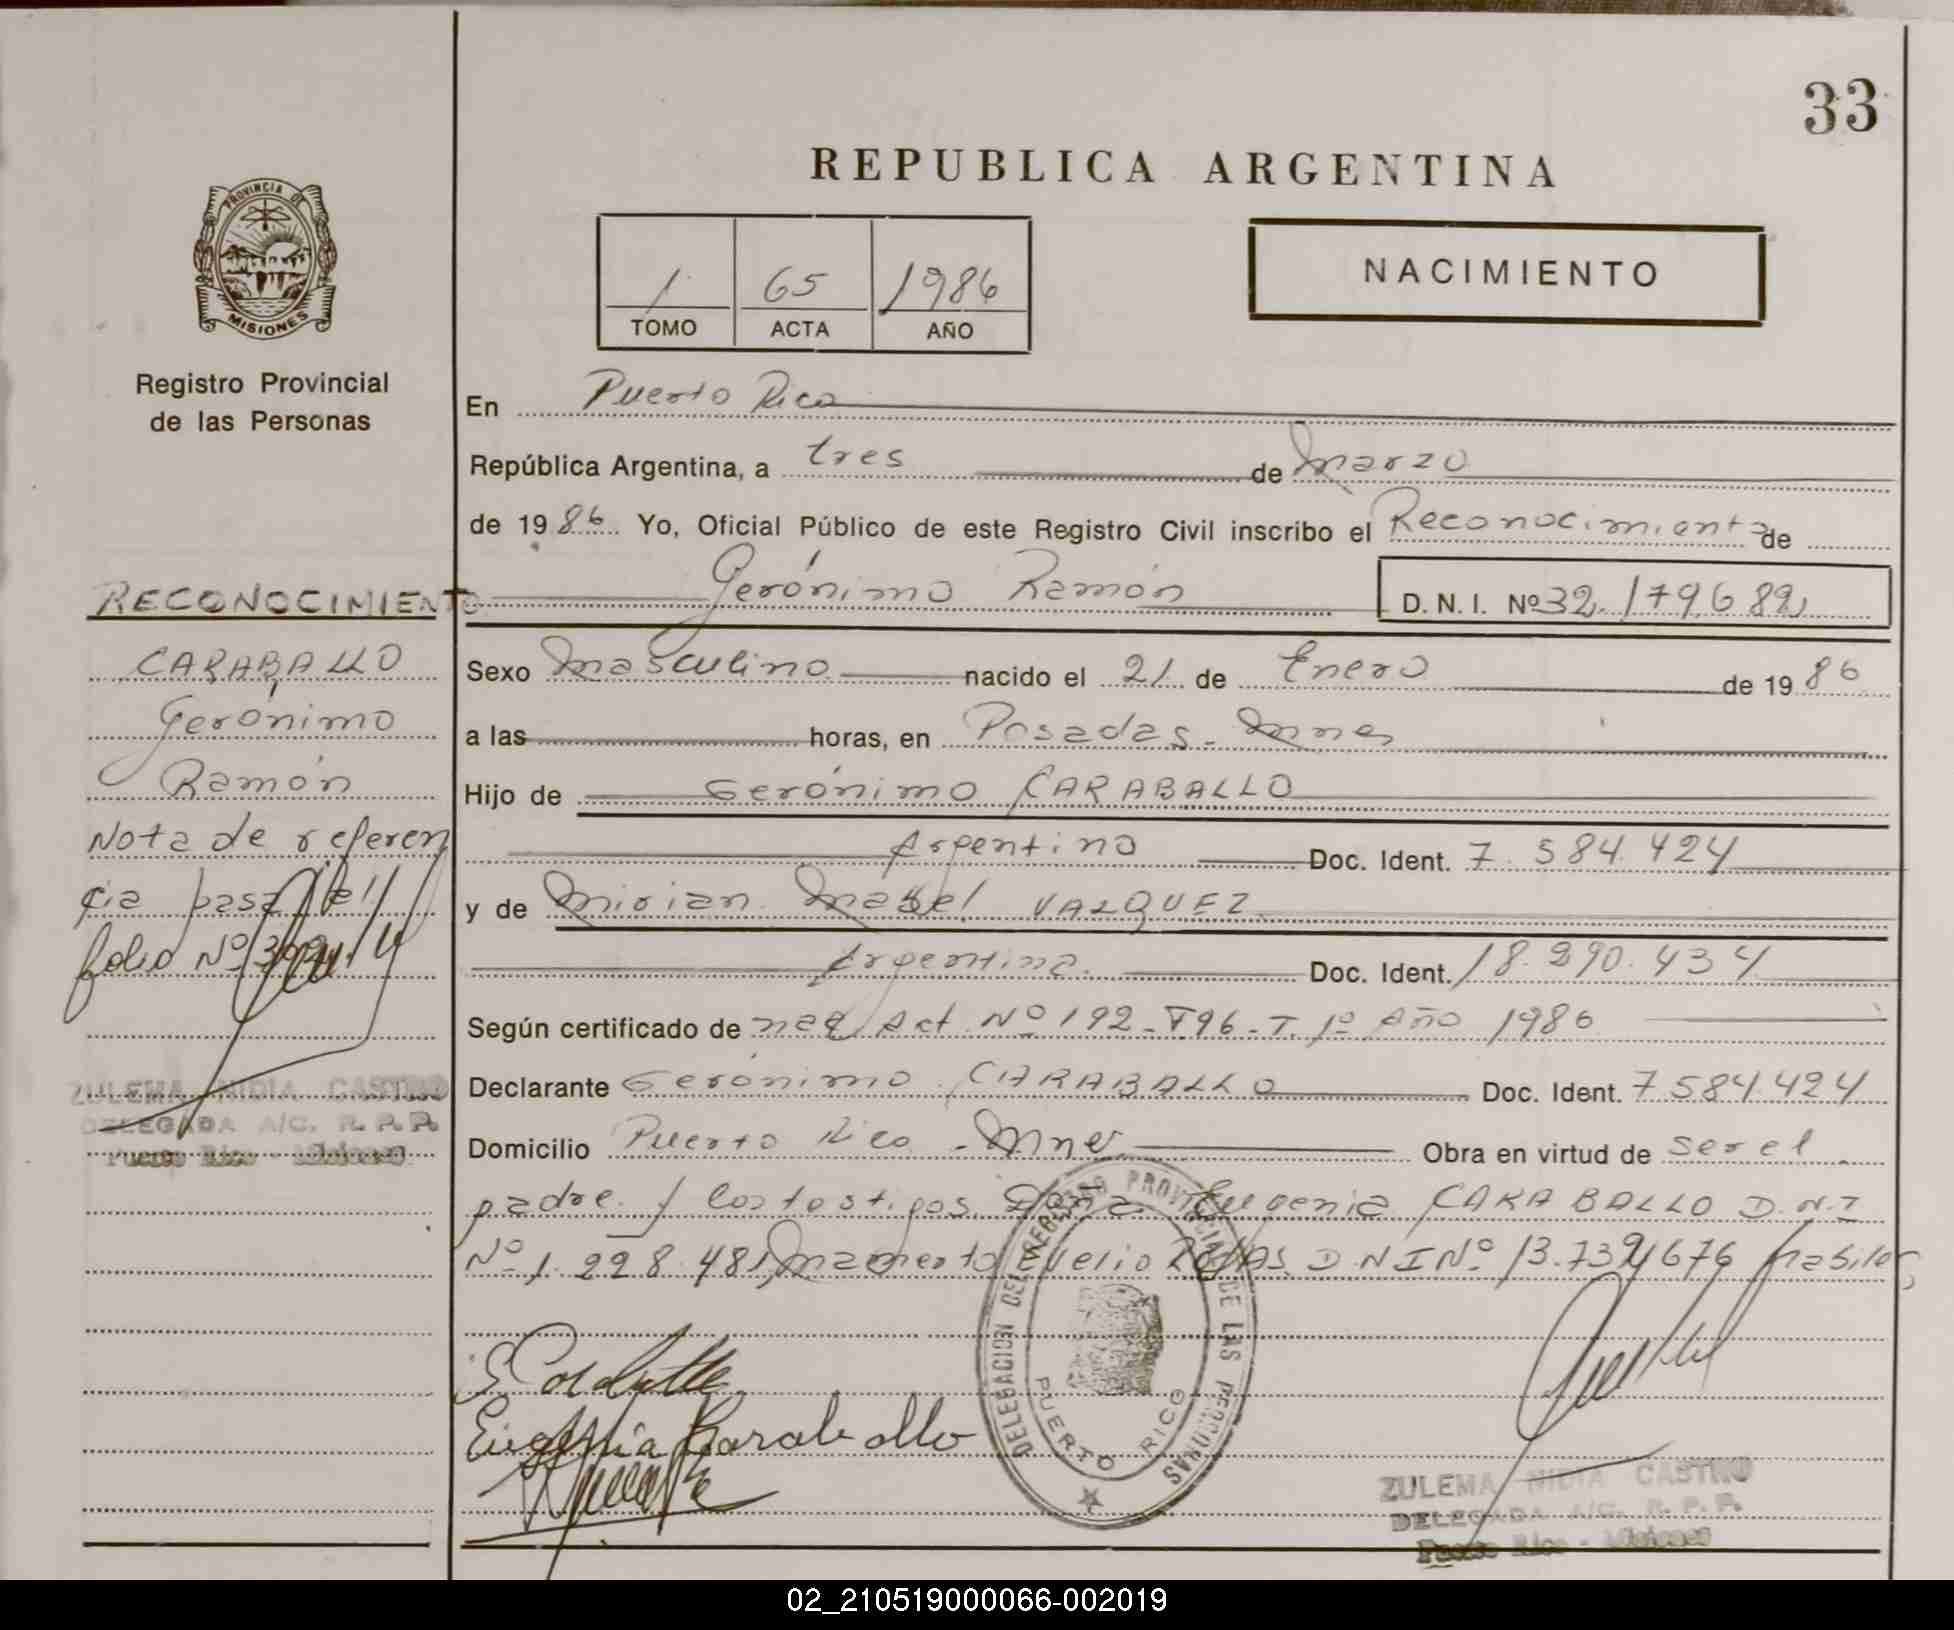 33
REPUBLICA ARGENTINA
PROVINCIA DE
MISIONES
Registro Provincial
de las Personas
1 65 1986
TOMO ACTA AÑO
NACIMIENTO
En Puerto Rico
República Argentina, a tres de Marzo
de 1986 Yo, Oficial Público de este Registro Civil inscribo el Reconocimiento de
Gerónimo Ramón D. N. I. Nº 32.179.689
Sexo Masculino nacido el 21 de Enero de 1986
a las horas, en Posadas - Mnes
Hijo de Gerónimo CARABALLO
Argentino Doc. Ident. 7.584.424
y de Mirian Mabel VAZQUEZ
Argentina Doc. Ident. 18.290.434
Según certificado de nac Act Nº 192 - F 96 - T. 1º Año 1986
Declarante Gerónimo CARABALLO Doc. Ident. 7.584.424
Domicilio Puerto Rico - Mnes Obra en virtud de ser el
padre y los testigos Dña. Eugenia CARABALLO D.N.I
Nº 1.228.481, Mamerto Evelio D.N.I Nº habiles
RECONOCIMIENTO
CARABALLO
Gerónimo
Ramón
Nota de referen
cia pasa al
folio Nº
ZULEMA NIDIA CASTRO
DELEGADA A/C. R. P. P.
Puerto Rico - Misiones
Eugenia Caraballo
DELEGACION DEL REGISTRO PROVINCIAL DE LAS PERSONAS
PUERTO RICO
ZULEMA NIDIA CASTRO
DELEGADA A/C. R. P. P.
Puerto Rico - Misiones
02_210519000066-002019